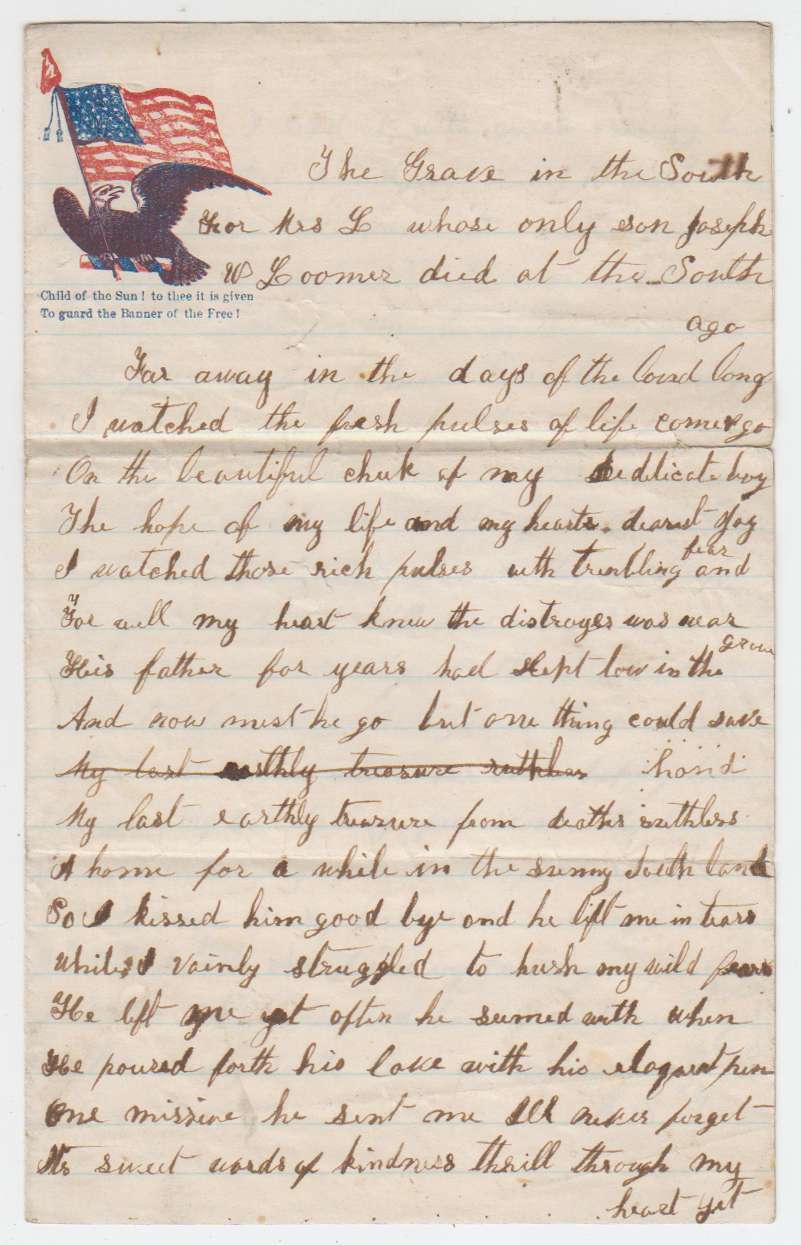 The Grave in the South
For Mrs L whose only son Joseph
W Loomer died at the South
Child of the Sun! to thee it is given
To guard the Banner of the Free!
ago
Far away in the days of the loved long
I watched the fresh pulses of life come & go
On the beautiful cheek of my delicate boy
The hope of my life and my hearts dearest Joy
fear
I watched those rich pulses with trembling and
For well my heart knew the distroyer was near
grave
His father for years had slept low in the
And now must he go but one thing could save
My last earthly treasure ruthless hand
My last earthly treasure from deaths ruthless
A home for a while in the sunny South land
So I kissed him good bye and he left me in tears
While I vainly struggled to hush my wild fears
He left me yet often he seemed with when
He poured forth his love with his eloquent pen
One missive he sent me Ill never forget
Its sweet words of kindness thrill through my
heart yet